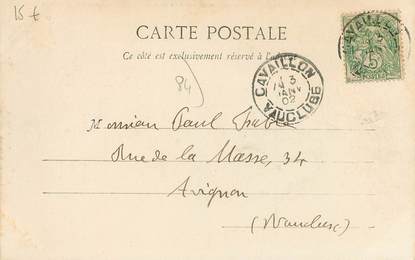 15€
CARTE POSTALE
Ce côté est exclusivement réservé à l'
84
CAVAILLON
3
JANV
02
VAUCLUSE
CAVAILLON
5
Monsieur Paul
Rue de la Masse, 34
Avignon
(Vaucluse)